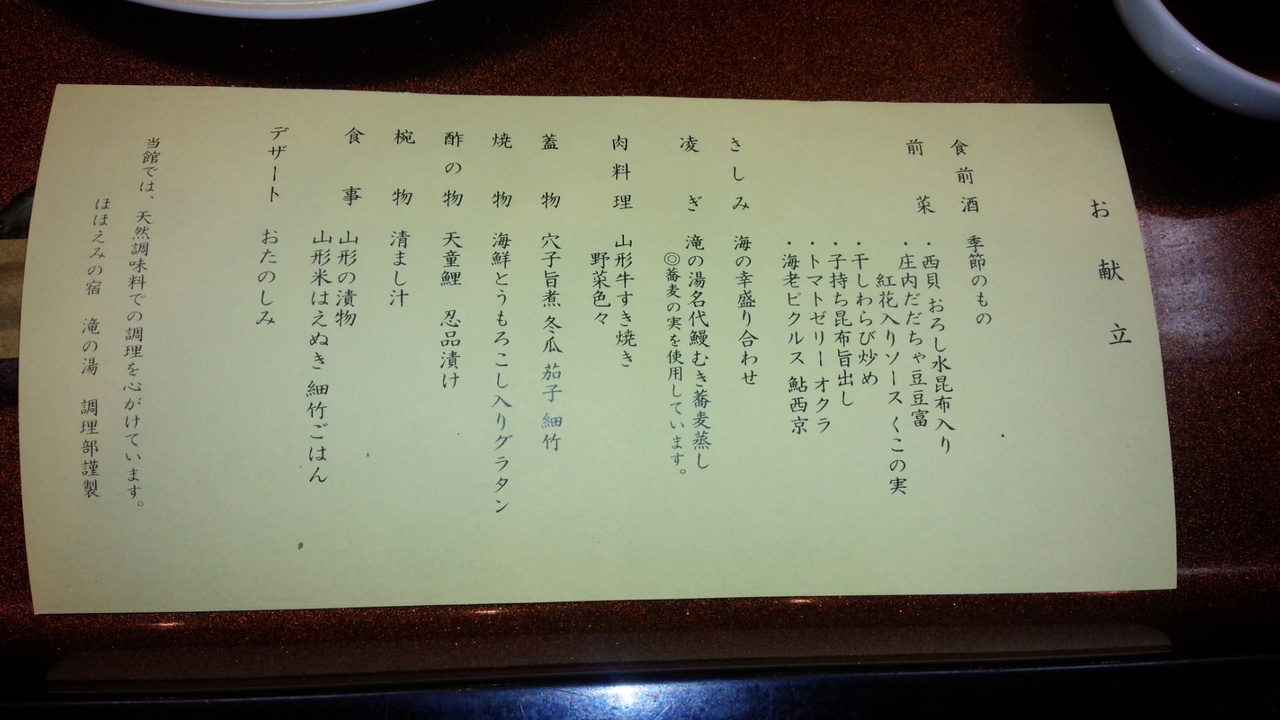 お献立
食前酒 季節のもの
前菜 ・西貝 おろし水昆布入り
・庄内だだちゃ豆豆富
紅花入りソース くこの実
・干しわらび炒め
・子持ち昆布旨出し
・トマトゼリー オクラ
・海老ピクルス 鮎西京
さしみ 海の幸盛り合わせ
凌ぎ 滝の湯名代鰻むき蕎麦蒸し
◎蕎麦の実を使用しています。
肉料理 山形牛すき焼き
野菜色々
蓋物 穴子旨煮 冬瓜 茄子 細竹
焼物 海鮮とうもろこし入りグラタン
酢の物 天童鯉 忍品漬け
椀物 清まし汁
食事 山形の漬物
山形米はえぬき 細竹ごはん
デザート おたのしみ
当館では、天然調味料での調理を心がけています。
ほほえみの宿 滝の湯 調理部謹製